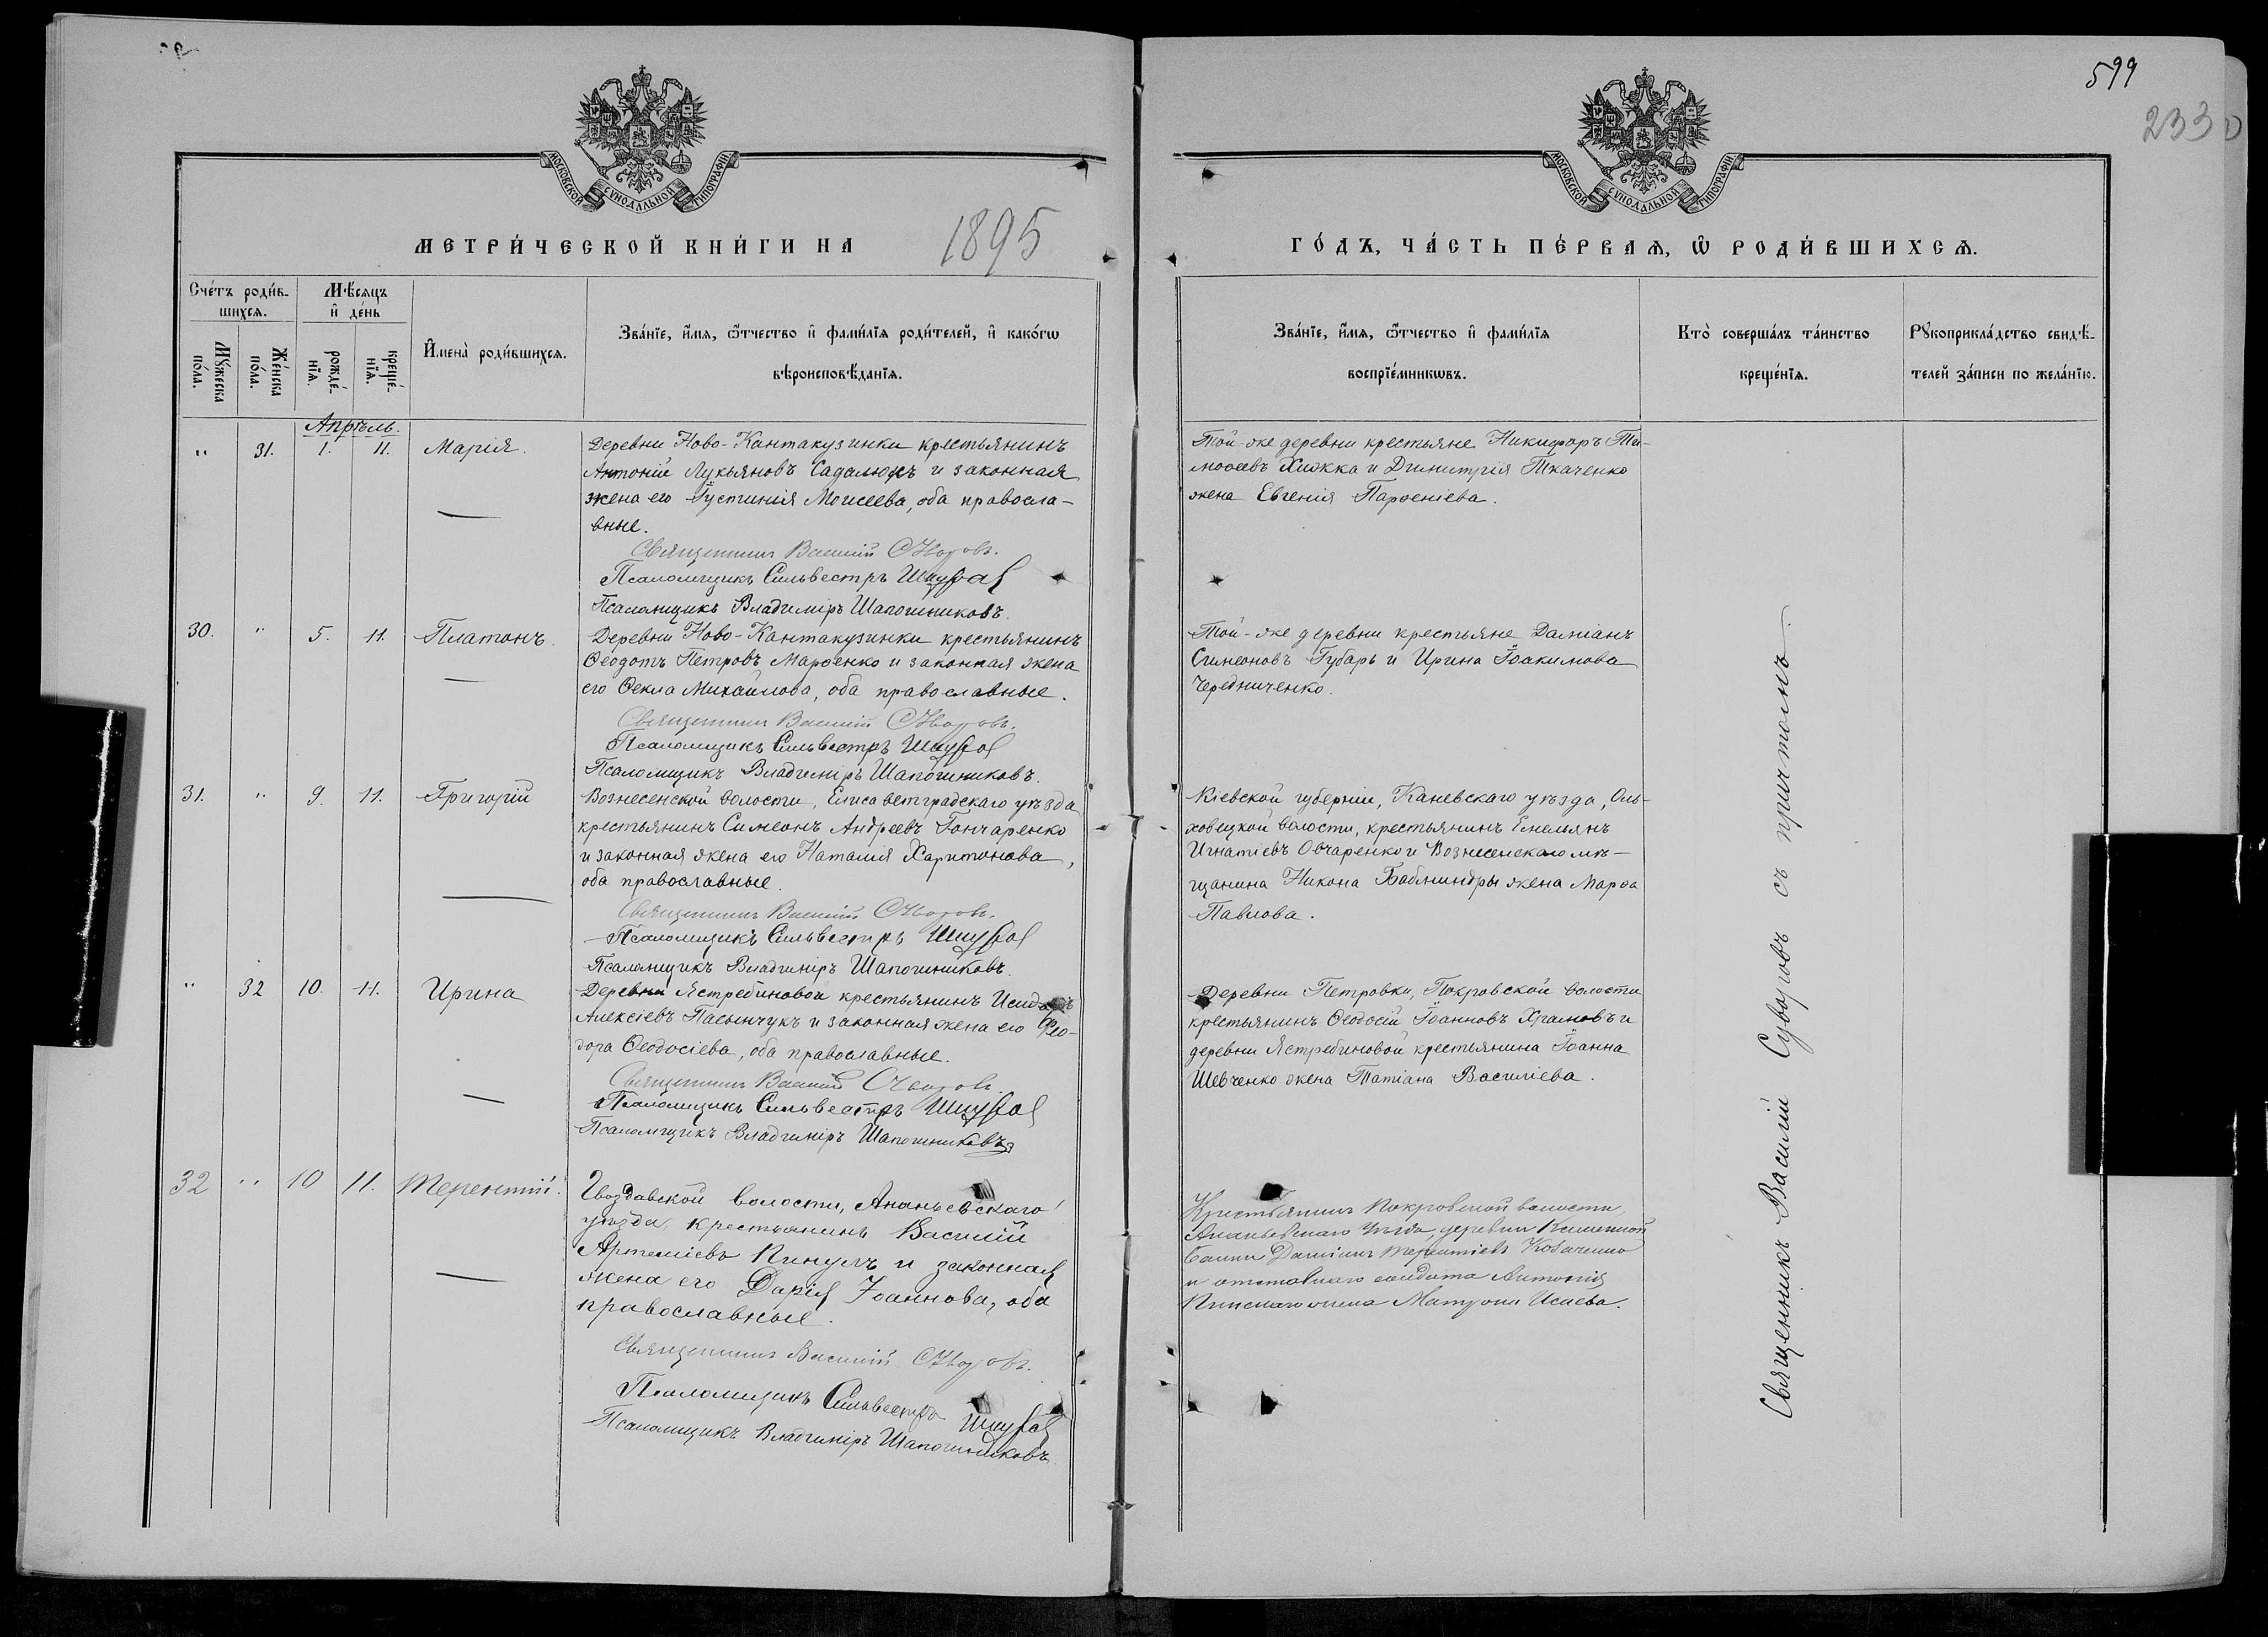 599
233
МОСКОВСКОЙ СѴНОДАЛЬНОЙ ТИПОГРАФІИ
МОСКОВСКОЙ СѴНОДАЛЬНОЙ ТИПОГРАФІИ
МЕТРИ́ЧЕСКОЙ КНИ́ГИ НА 1895
ГО́ДЪ, ЧА́СТЬ ПЕ́РВАЯ, Ѿ РОДИ́ВШИХСЯ.
Сче́тъ роди́в-
шихсѧ.
Мꙋ́жеска
по́ла.
Же́нска
по́ла.
Мѣ́сѧцъ
и҆ де́нь
рожде́-
нїѧ.
креще́-
нїѧ.
И҆мена̀ роди́вшихсѧ.
Зва́нїе, и҆́мѧ, ѻ҆́тчество и҆ фами́лїѧ роди́телей, и҆ како́гѡ
вѣроисповѣ́данїѧ.
Зва́нїе, и҆́мѧ, ѻ҆́тчество и҆ фами́лїѧ
воспрїе́мникѡвъ.
Кто̀ соверша́лъ та́инство
креще́нїѧ.
Рꙋкоприкла́дство свидѣ́-
телей за́писи по жела́нїю.
Апрѣль.
" 31. 1. 11. Марія.
Деревни Ново-Кантакузинки крестьянинъ
Антоній Лукьяновъ Садалюкъ и законная
жена его Іустинія Моисеева, оба правосла-
вные.
Священникъ Василій Суворовъ.
Псаломщикъ Сильвестръ
Псаломщикъ Владиміръ Шапошниковъ.
Той-же деревни крестьяне Никифоръ Ти-
моѳеевъ и Димитрія Ткаченко
жена Евгенія Парѳеніева.
30. " 5. 11. Платонъ.
Деревни Ново-Кантакузинки крестьянинъ
Ѳеодотъ Петровъ Марѳенко и законная жена
его Ѳекла Михайлова, оба православные.
Священникъ Василій Суворовъ.
Псаломщикъ Сильвестръ
Псаломщикъ Владиміръ Шапошниковъ.
Той-же деревни крестьяне Даміанъ
Симеоновъ Губарь и Ирина Іоакимова
Чередниченко.
31. " 9. 11. Григорій
Вознесенской волости, Елисаветградскаго уѣзда
крестьянинъ Симеонъ Андреевъ Гончаренко
и законная жена его Наталія Харитонова,
оба православные.
Священникъ Василій Суворовъ.
Псаломщикъ Сильвестръ
Псаломщикъ Владиміръ Шапошниковъ.
Кіевской губерніи, Каневскаго уѣзда, Оль-
ховецкой волости, крестьянинъ Емельянъ
Игнатіевъ Овчаренко и Вознесенскаго мѣ-
щанина Никона жена Марѳа
Павлова.
" 32 10. 11. Ирина
Деревни Ястребиновой крестьянинъ Исидоръ
Алексіевъ Пасынчукъ и законная жена его Ѳео-
дора Ѳеодосіева, оба православные.
Священникъ Василій Суворовъ.
Псаломщикъ Сильвестръ
Псаломщикъ Владиміръ Шапошниковъ
Деревни Петровки, Покровской волости
крестьянинъ Ѳеодосій Іоанновъ Храмовъ и
деревни Ястребиновой крестьянина Іоанна
Шевченко жена Татіана Василіева.
32 " 10 11. Терентій.
Гвоздавской волости, Ананьевскаго
уѣзда, крестьянинъ Василій
Артеміевъ Кикулъ и законная
жена его Дарія Іоаннова, оба
православные.
Священникъ Василій Суворовъ.
Псаломщикъ Сильвестръ
Псаломщикъ Владиміръ Шапошниковъ
Крестьянинъ Покровской волости,
Ананьевскаго уѣзда, деревни
Балки Даміанъ Терентіевъ Коваченко
и отставнаго солдата Антонія
жена Матрона Исаева.
Священникъ Василій Суворовъ съ причтомъ.